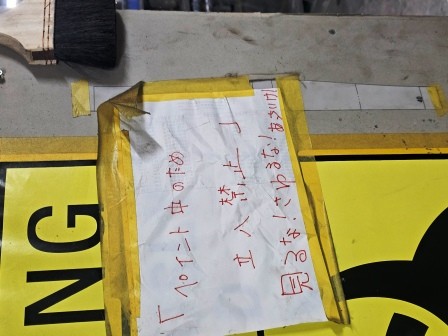 「ペイント中のため
立入禁止」
見るな!さわるな!
NG